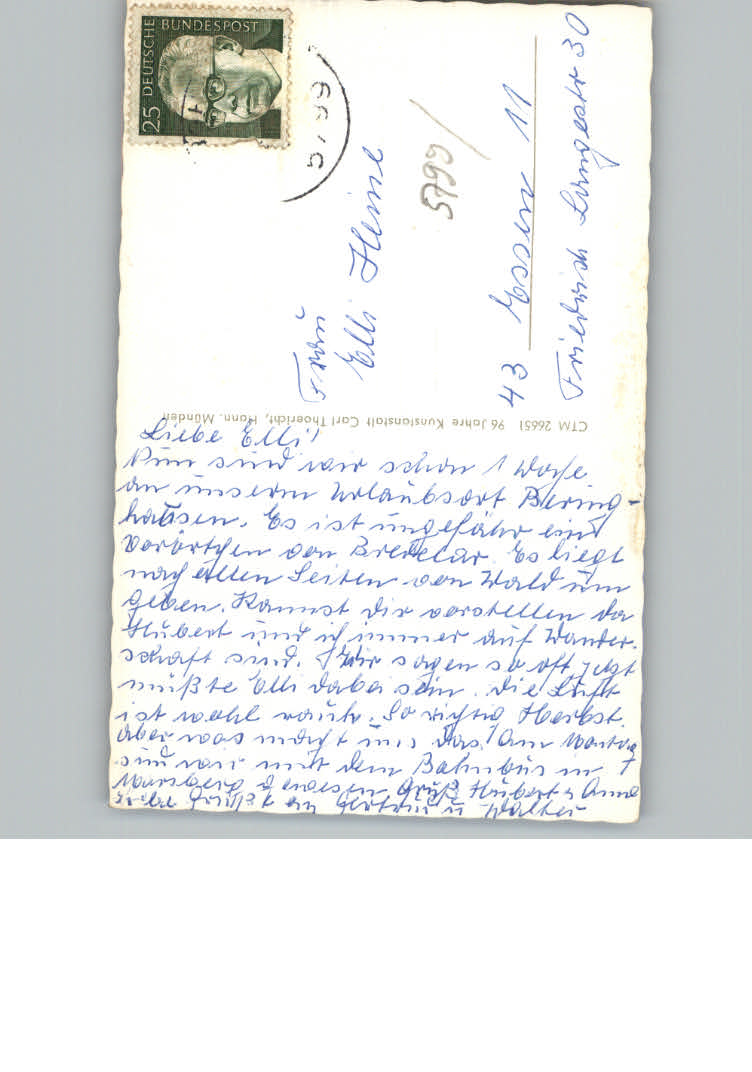 25 DEUTSCHE BUNDESPOST
5799
5799
Frau
Elli Heine
43 Essen 11
Friedrich Langestr 30
CTM 26651 96 Jahre Kunstanstalt Carl Thoericht, Hann. Münden
Liebe Elli!
Nun sind wir schon 1 Woche
an unserm Urlaubsort Bering-
hausen. Es ist ungefähr ein
Vorörtchen von Bredelar. Es liegt
nach allen Seiten von Wald um
geben. Kannst dir vorstellen da
Hubert und ich immer auf Wander-
schaft sind. Wir sagen so oft jetzt
müßte Elli dabei sein. Die Luft
ist wohl rauh. So richtig Herbst.
Aber was macht uns das! Am Montag
sind wir mit dem Bahnbus in
gewesen Gruß Hubert u Anne
an u Walter